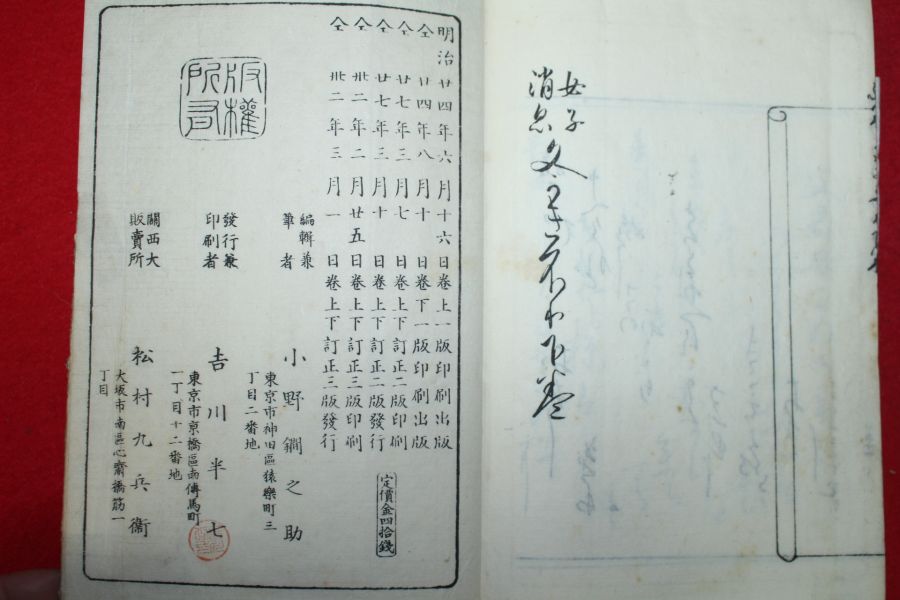 女子
消息
文
下卷
明治廿四年六月十六日卷上一版印刷出版
仝廿四年八月十日卷下一版印刷出版
仝廿七年三月七日卷上下訂正二版印刷
仝廿七年三月十日卷上下訂正二版發行
仝卅二年二月廿五日卷上下訂正三版印刷
仝卅二年三月一日卷上下訂正三版發行
定價金四拾錢
編輯兼
筆者
小野鐗之助
東京市神田區猿樂町三
丁目二番地
發行兼
印刷者
吉川半七
東京市京橋區南傳馬町
一丁目十二番地
關西大
販賣所
松村九兵衞
大坂市南區心齋橋筋一
丁目
版權
所有